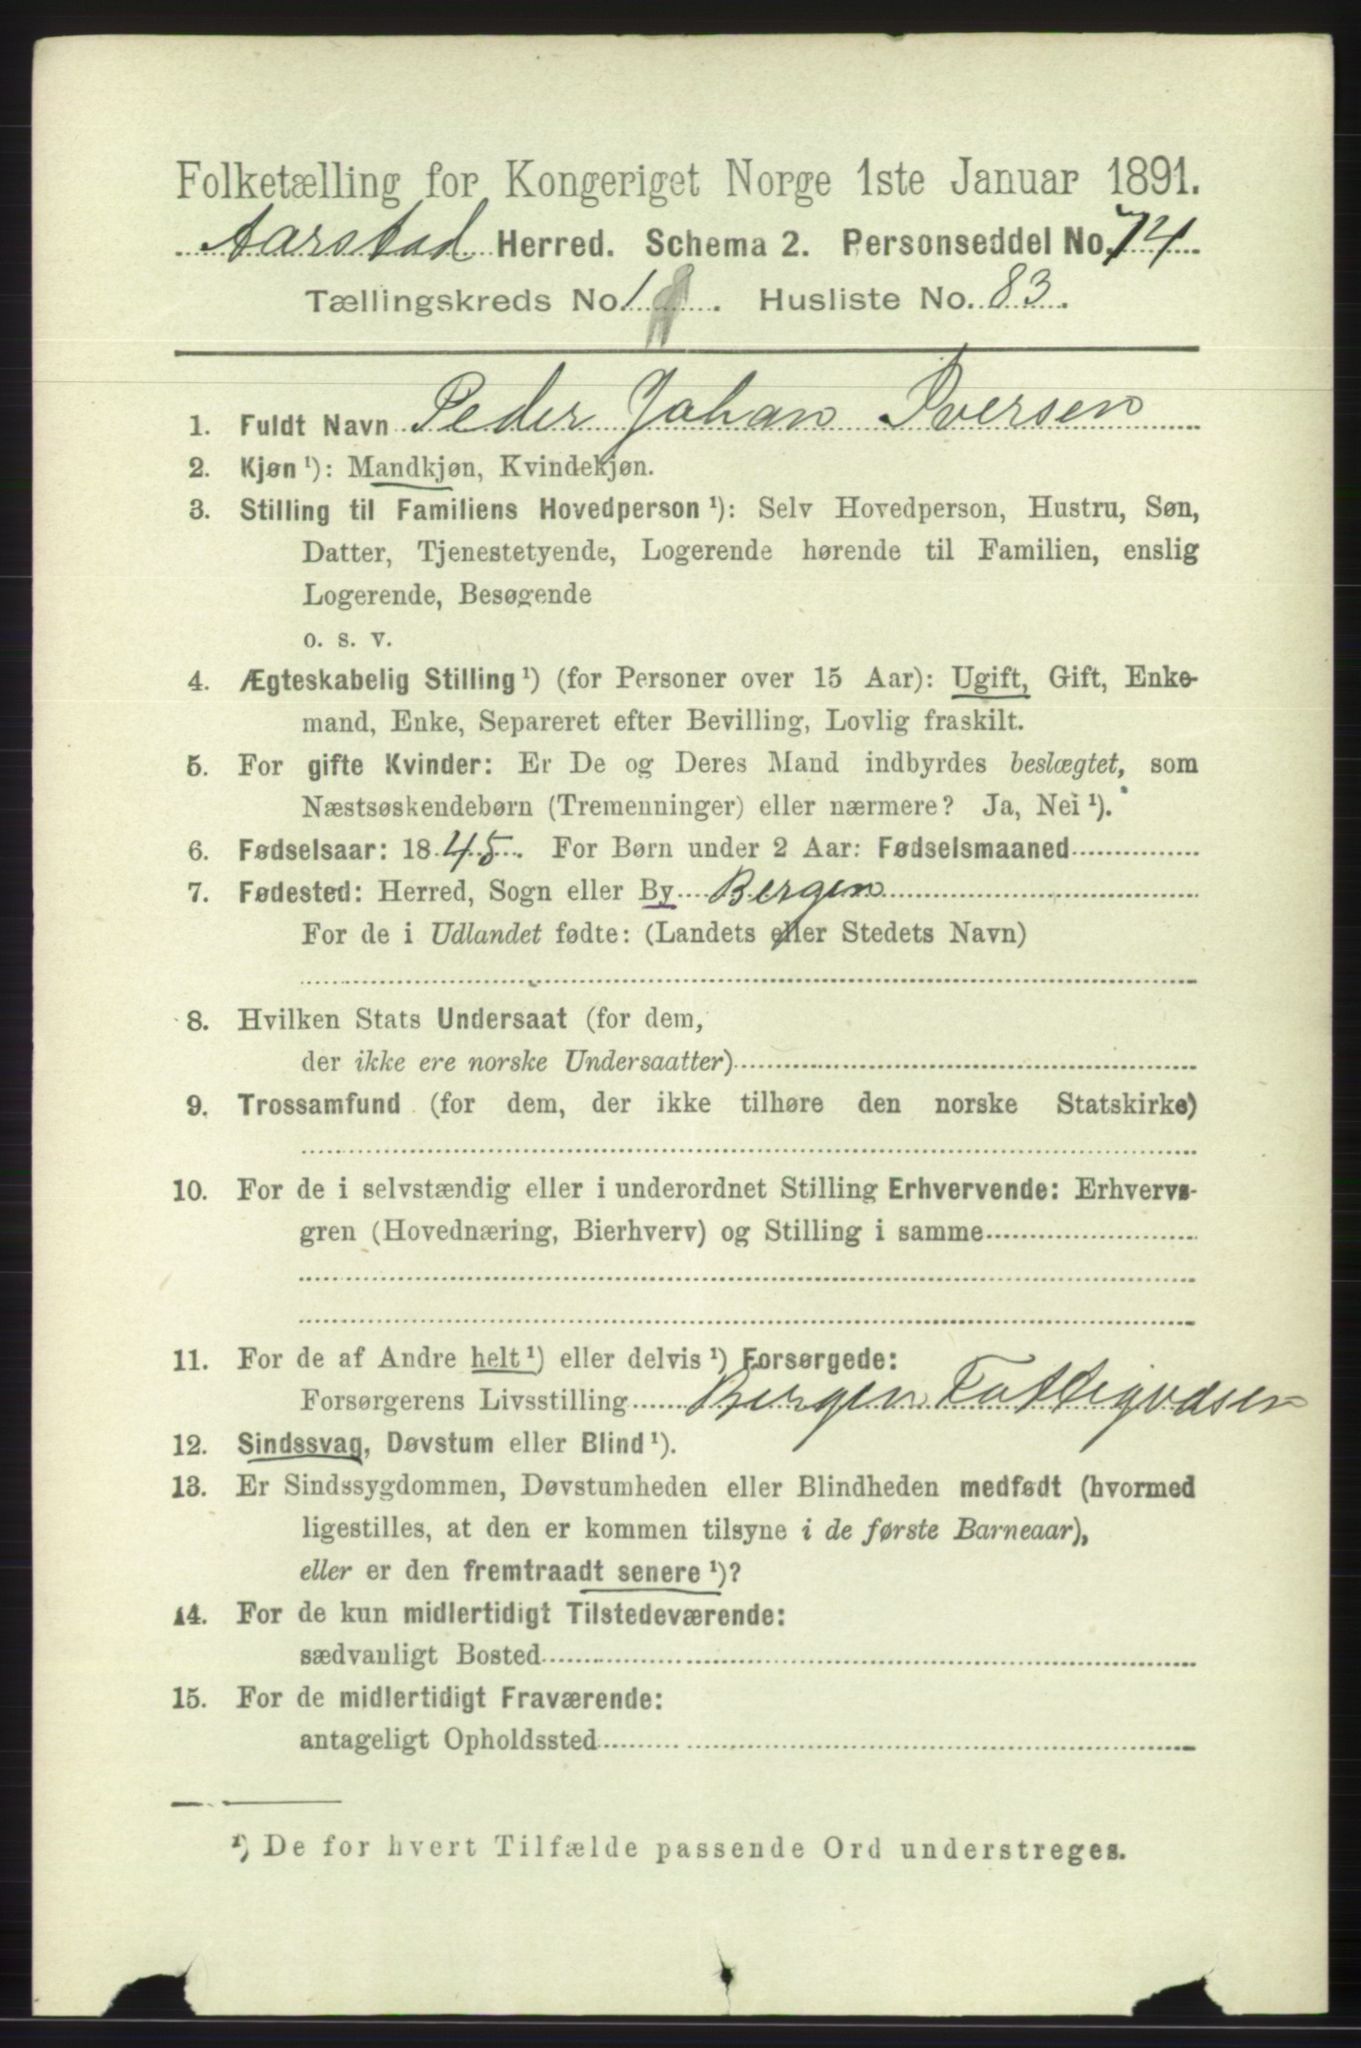 Folketælling for Kongeriget Norge 1ste Januar 1891.
Aarstad Herred. Schema 2. Personseddel No. 74
Tællingskreds No. 1. Husliste No. 83.
1. Fuldt Navn Peder Johan Iversen
2. Kjøn ¹): Mandkjøn, Kvindekjøn.
3. Stilling til Familiens Hovedperson ¹): Selv Hovedperson, Hustru, Søn,
Datter, Tjenestetyende, Logerende hørende til Familien, enslig
Logerende, Besøgende
o. s. v.
4. Ægteskabelig Stilling ¹) (for Personer over 15 Aar): Ugift, Gift, Enke-
mand, Enke, Separeret efter Bevilling, Lovlig fraskilt.
5. For gifte Kvinder: Er De og Deres Mand indbyrdes beslægtet, som
Næstsøskendebørn (Tremenninger) eller nærmere? Ja, Nei ¹).
6. Fødselsaar: 1845. For Børn under 2 Aar: Fødselsmaaned
7. Fødested: Herred, Sogn eller By Bergen
For de i Udlandet fødte: (Landets eller Stedets Navn)
8. Hvilken Stats Undersaat (for dem,
der ikke ere norske Undersaatter)
9. Trossamfund (for dem, der ikke tilhøre den norske Statskirke)
10. For de i selvstændig eller i underordnet Stilling Erhvervende: Erhvervs-
gren (Hovednæring, Bierhverv) og Stilling i samme
11. For de af Andre helt ¹) eller delvis ¹) Forsørgede:
Forsørgerens Livsstilling Bergen Fattigvæsen
12. Sindssvag, Døvstum eller Blind ¹).
13. Er Sindssygdommen, Døvstumheden eller Blindheden medfødt (hvormed
ligestilles, at den er kommen tilsyne i de første Barneaar),
eller er den fremtraadt senere ¹)?
14. For de kun midlertidigt Tilstedeværende:
sædvanligt Bosted
15. For de midlertidigt Fraværende:
antageligt Opholdssted
¹) De for hvert Tilfælde passende Ord understreges.